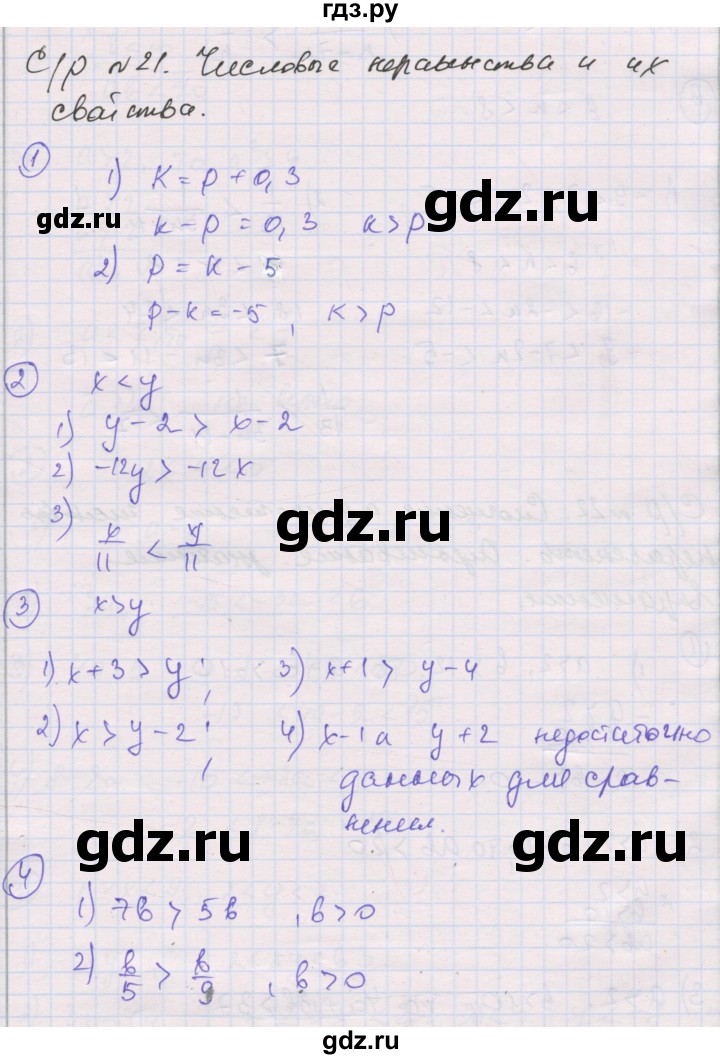 гдз.ру
С/р №21. Числовые неравенства и их
свойства.
1
1) K = p + 0,3
k - p = 0,3 k > p
gdz.ru
gdz.ru
2) p = k - 5
p - k = -5, k > p
2 x < y
1) y - 2 > x - 2
2) -12y > -12x
3) x/11 < y/11
gdz.ru
3 x > y
1) x + 3 > y; 3) x + 1 > y - 4
2) x > y - 2; 4) x - 1 а y + 2 недостаточно
данных для срав-
нения.
gdz.ru
gdz.ru
4
1) 7b > 5b , b > 0
2) b/5 > b/9 , b > 0
gdz.ru
gdz.ru